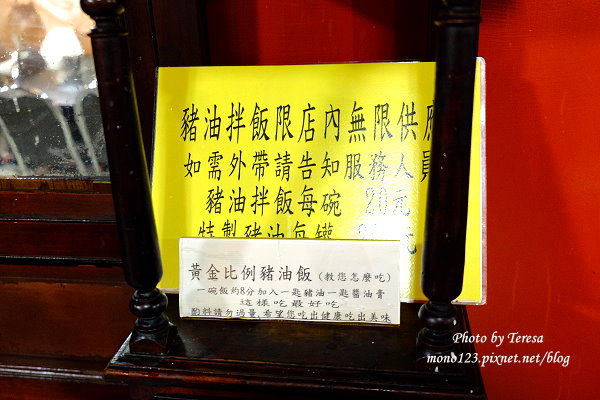 豬油拌飯限店內無限供應
如需外帶請告知服務人員
豬油拌飯每碗 20元
特製豬油每罐 元
黃金比例豬油飯（教您怎麼吃）
一碗飯約8分加入一匙豬油一匙醬油膏
這樣吃最好吃
酌料請勿過量,希望您吃出健康吃出美味
Photo by Teresa
mono123.pixnet.net/blog